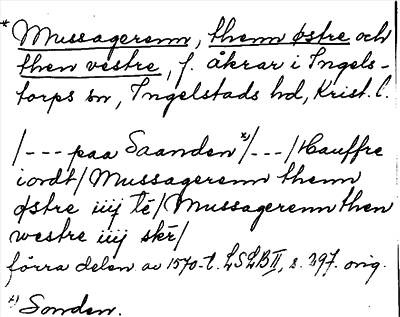 * Mussagerenn, thenn østre och
then vestre, f. åkrar i Ingels-
torps sn, Ingelstads hd, Krist. l.
/--- paa Saanden *)/---/Hauffre
iordt/Mussagerenn thenn
østre iiij tē/Mussagerenn then
westre iiij skē/
förra delen av 1570-t. LSLB II, s. 397. orig.
*) Sonden.